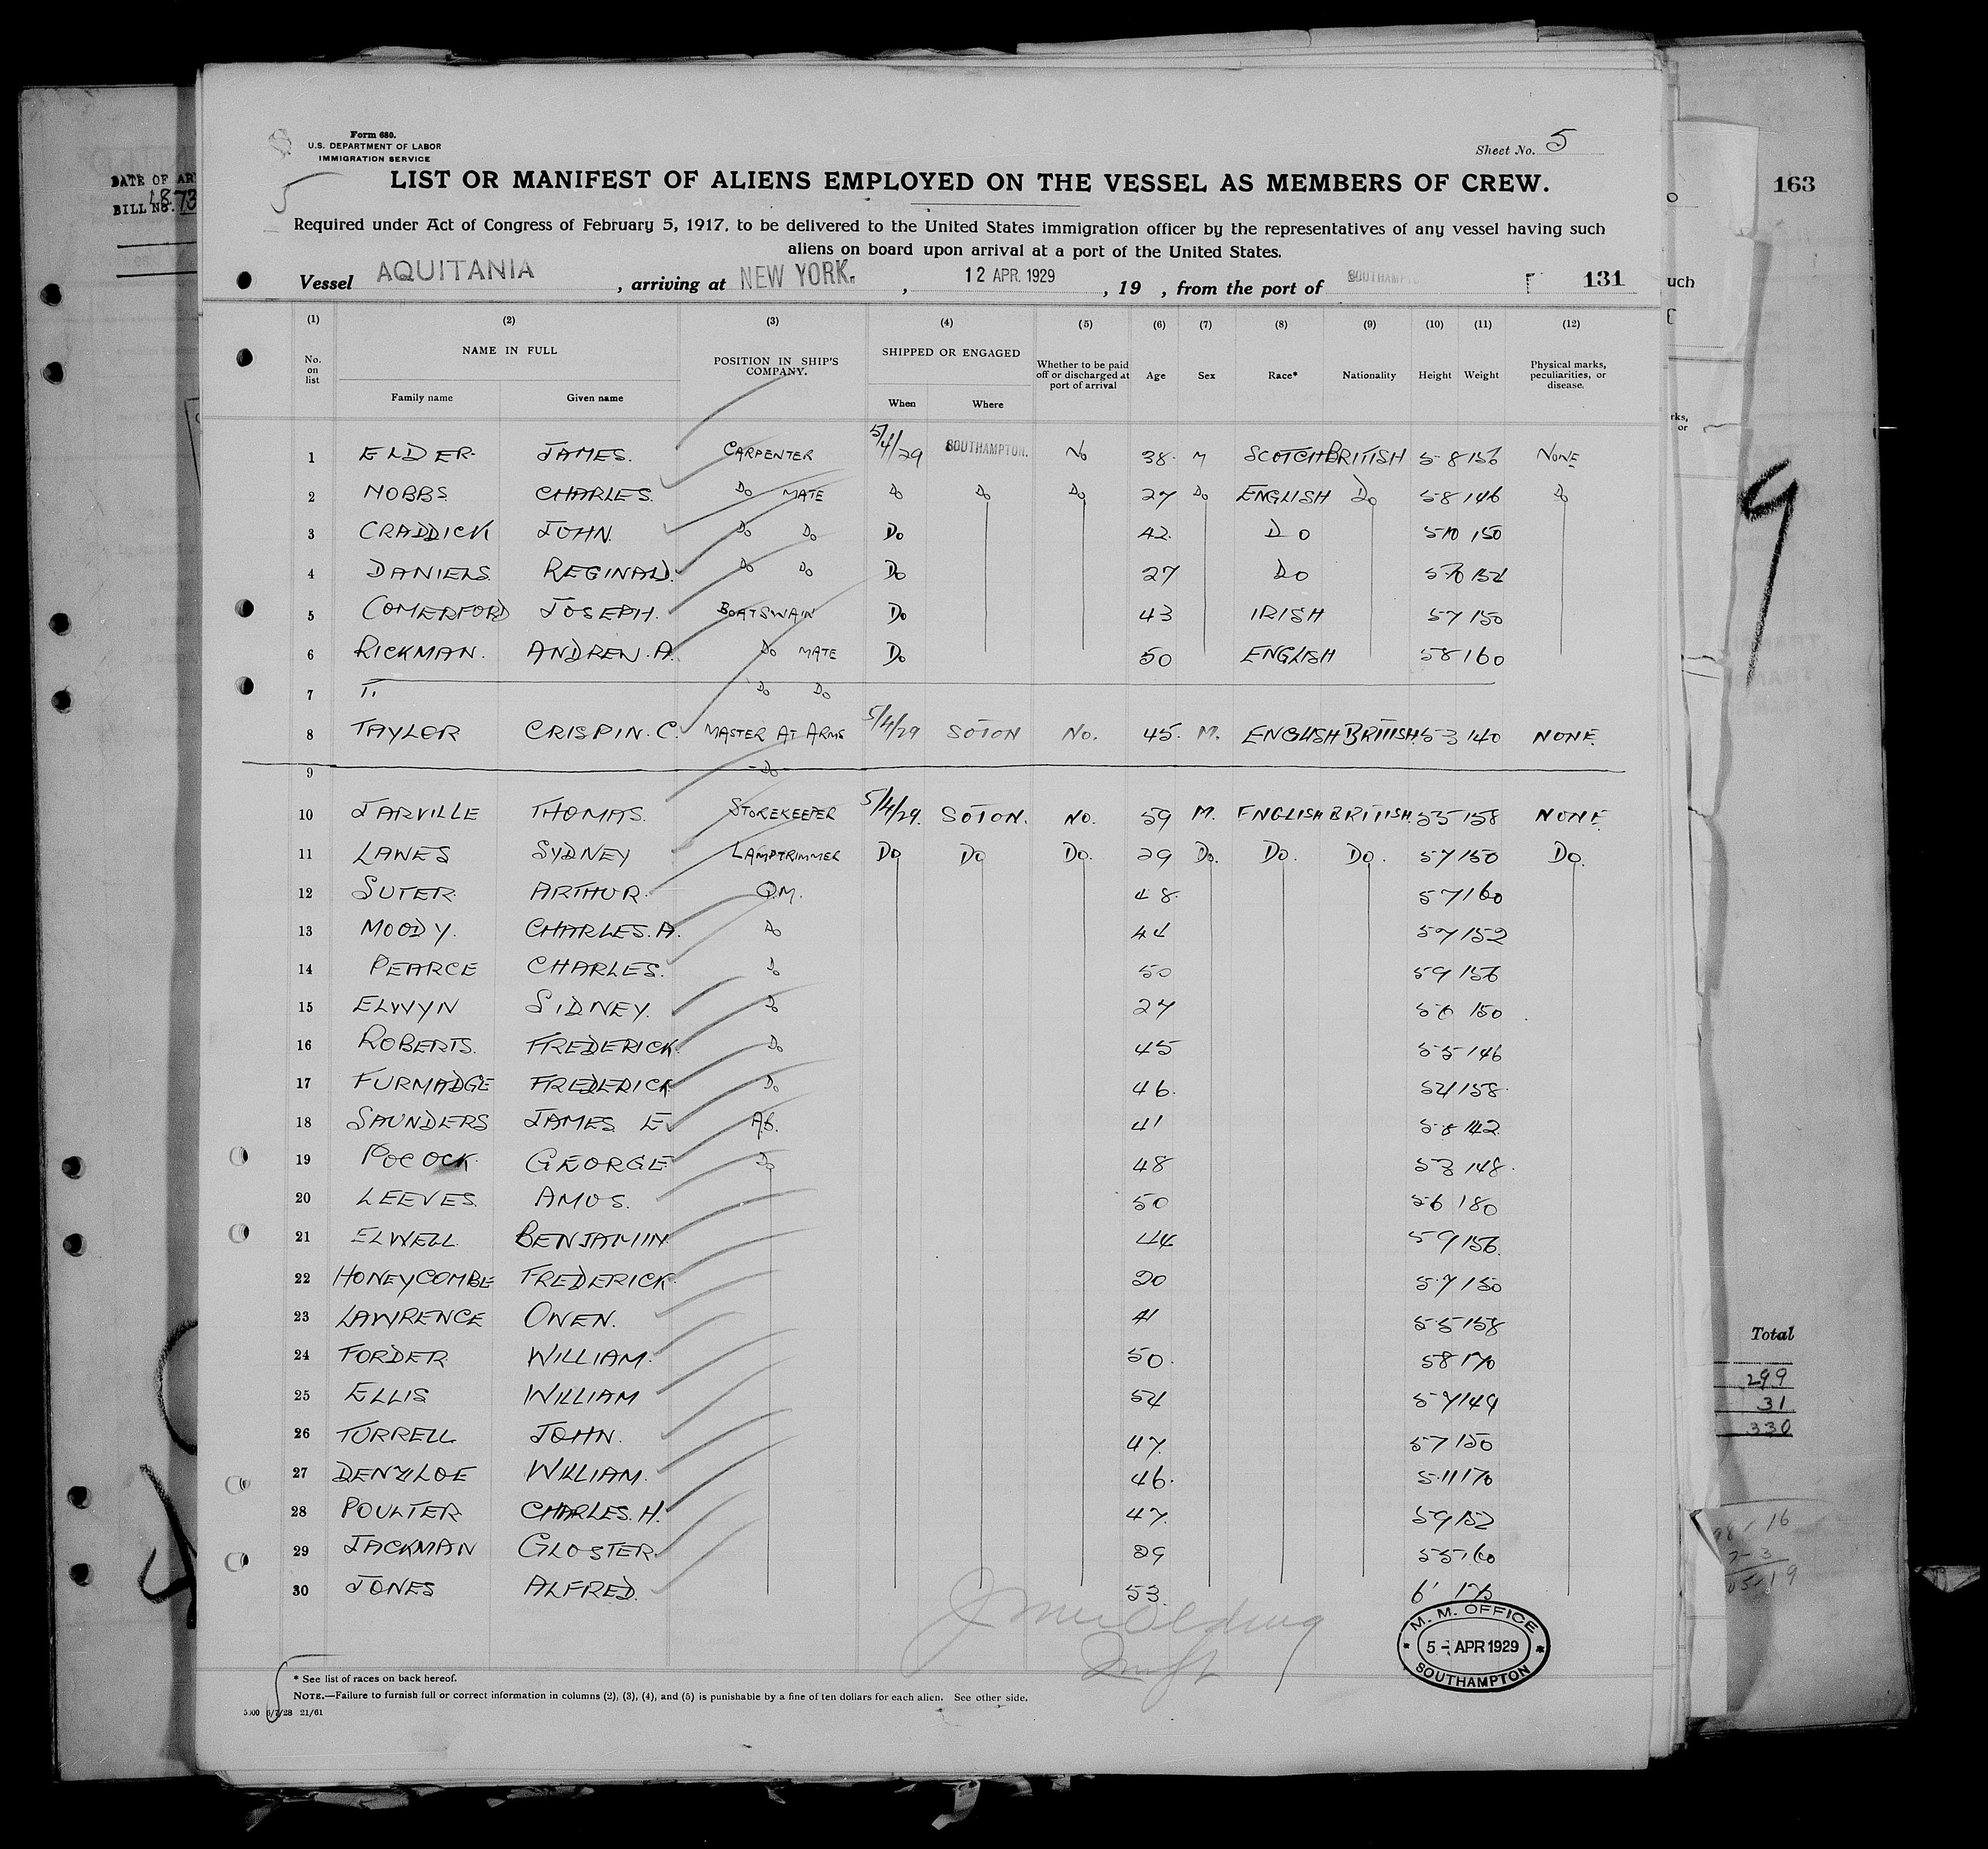 Form 680.
U.S. DEPARTMENT OF LABOR
IMMIGRATION SERVICE
Sheet No. 5
5
DATE OF AR
BILL NO.
163
LIST OR MANIFEST OF ALIENS EMPLOYED ON THE VESSEL AS MEMBERS OF CREW.
Required under Act of Congress of February 5, 1917, to be delivered to the United States immigration officer by the representatives of any vessel having such
aliens on board upon arrival at a port of the United States.
Vessel AQUITANIA, arriving at NEW YORK., 12 APR. 1929, 19 , from the port of SOUTHAMP 131
uch
(1) (2) (3) (4) (5) (6) (7) (8) (9) (10) (11) (12)
No. on list NAME IN FULL POSITION IN SHIP'S COMPANY. SHIPPED OR ENGAGED Whether to be paid off or discharged at port of arrival Age Sex Race* Nationality Height Weight Physical marks, peculiarities, or disease.
Family name Given name When Where
1 ELDER JAMES. CARPENTER 5/4/29 SOUTHAMPTON. No 38. M SCOTCH BRITISH 5-8 156 NONE
2 NOBBS CHARLES. Do MATE Do Do Do 27 Do ENGLISH Do 58 146 Do
3 CRADDICK JOHN. Do Do Do 42. Do 510 150
4 DANIELS REGINALD. Do Do Do 27 Do 154
5 COMERFORD JOSEPH. BOATSWAIN Do 43 IRISH 57 150
6 RICKMAN. ANDREW. A. Do MATE Do 50 ENGLISH 58 160
7 Do Do
8 TAYLOR CRISPIN. C. MASTER AT ARMS 5/4/29 SOTON No. 45. M. ENGLISH BRITISH. 53 140 NONE.
9 Do
10 JARVILLE THOMAS. STOREKEEPER 5/4/29. SOTON. No. 59 M. ENGLISH BRITISH. 55 158 NONE.
11 LAWES SYDNEY LAMPTRIMMER Do Do Do. 29 Do. Do. Do. 57 150 Do.
12 SUTER. ARTHUR. Q.M. 48. 57 160
13 MOODY. CHARLES. A. Do 44 57 152
14 PEARCE CHARLES. Do 50 59 156
15 ELWYN SIDNEY. Do 27 150
16 ROBERTS. FREDERICK. Do 45 55 146
17 FURMADGE FREDERICK Do 46. 54 158.
18 SAUNDERS JAMES E Ab. 41 142
19 POCOCK GEORGE Do 48 53 148.
20 LEEVES. AMOS. 50 56 180
21 ELWELL BENJAMIN 44 59 156.
22 HONEYCOMBE FREDERICK. 20 5.7 150
23 LAWRENCE OWEN. 41 5-5 158
24 FORDER WILLIAM. 50. 58 170
25 ELLIS WILLIAM 54 57 149
26 TURRELL JOHN. 47. 57 150
27 WILLIAM. 46. 5.11 170
28 POULTER CHARLES. H. 47. 59 152
29 JACKMAN GLOSTER. 29 55 160
30 JONES ALFRED. 53. 6'
Total
299
31
330
M. M. OFFICE
5 - APR 1929
SOUTHAMPTON
* See list of races on back hereof.
NOTE.—Failure to furnish full or correct information in columns (2), (3), (4), and (5) is punishable by a fine of ten dollars for each alien. See other side.
21/61